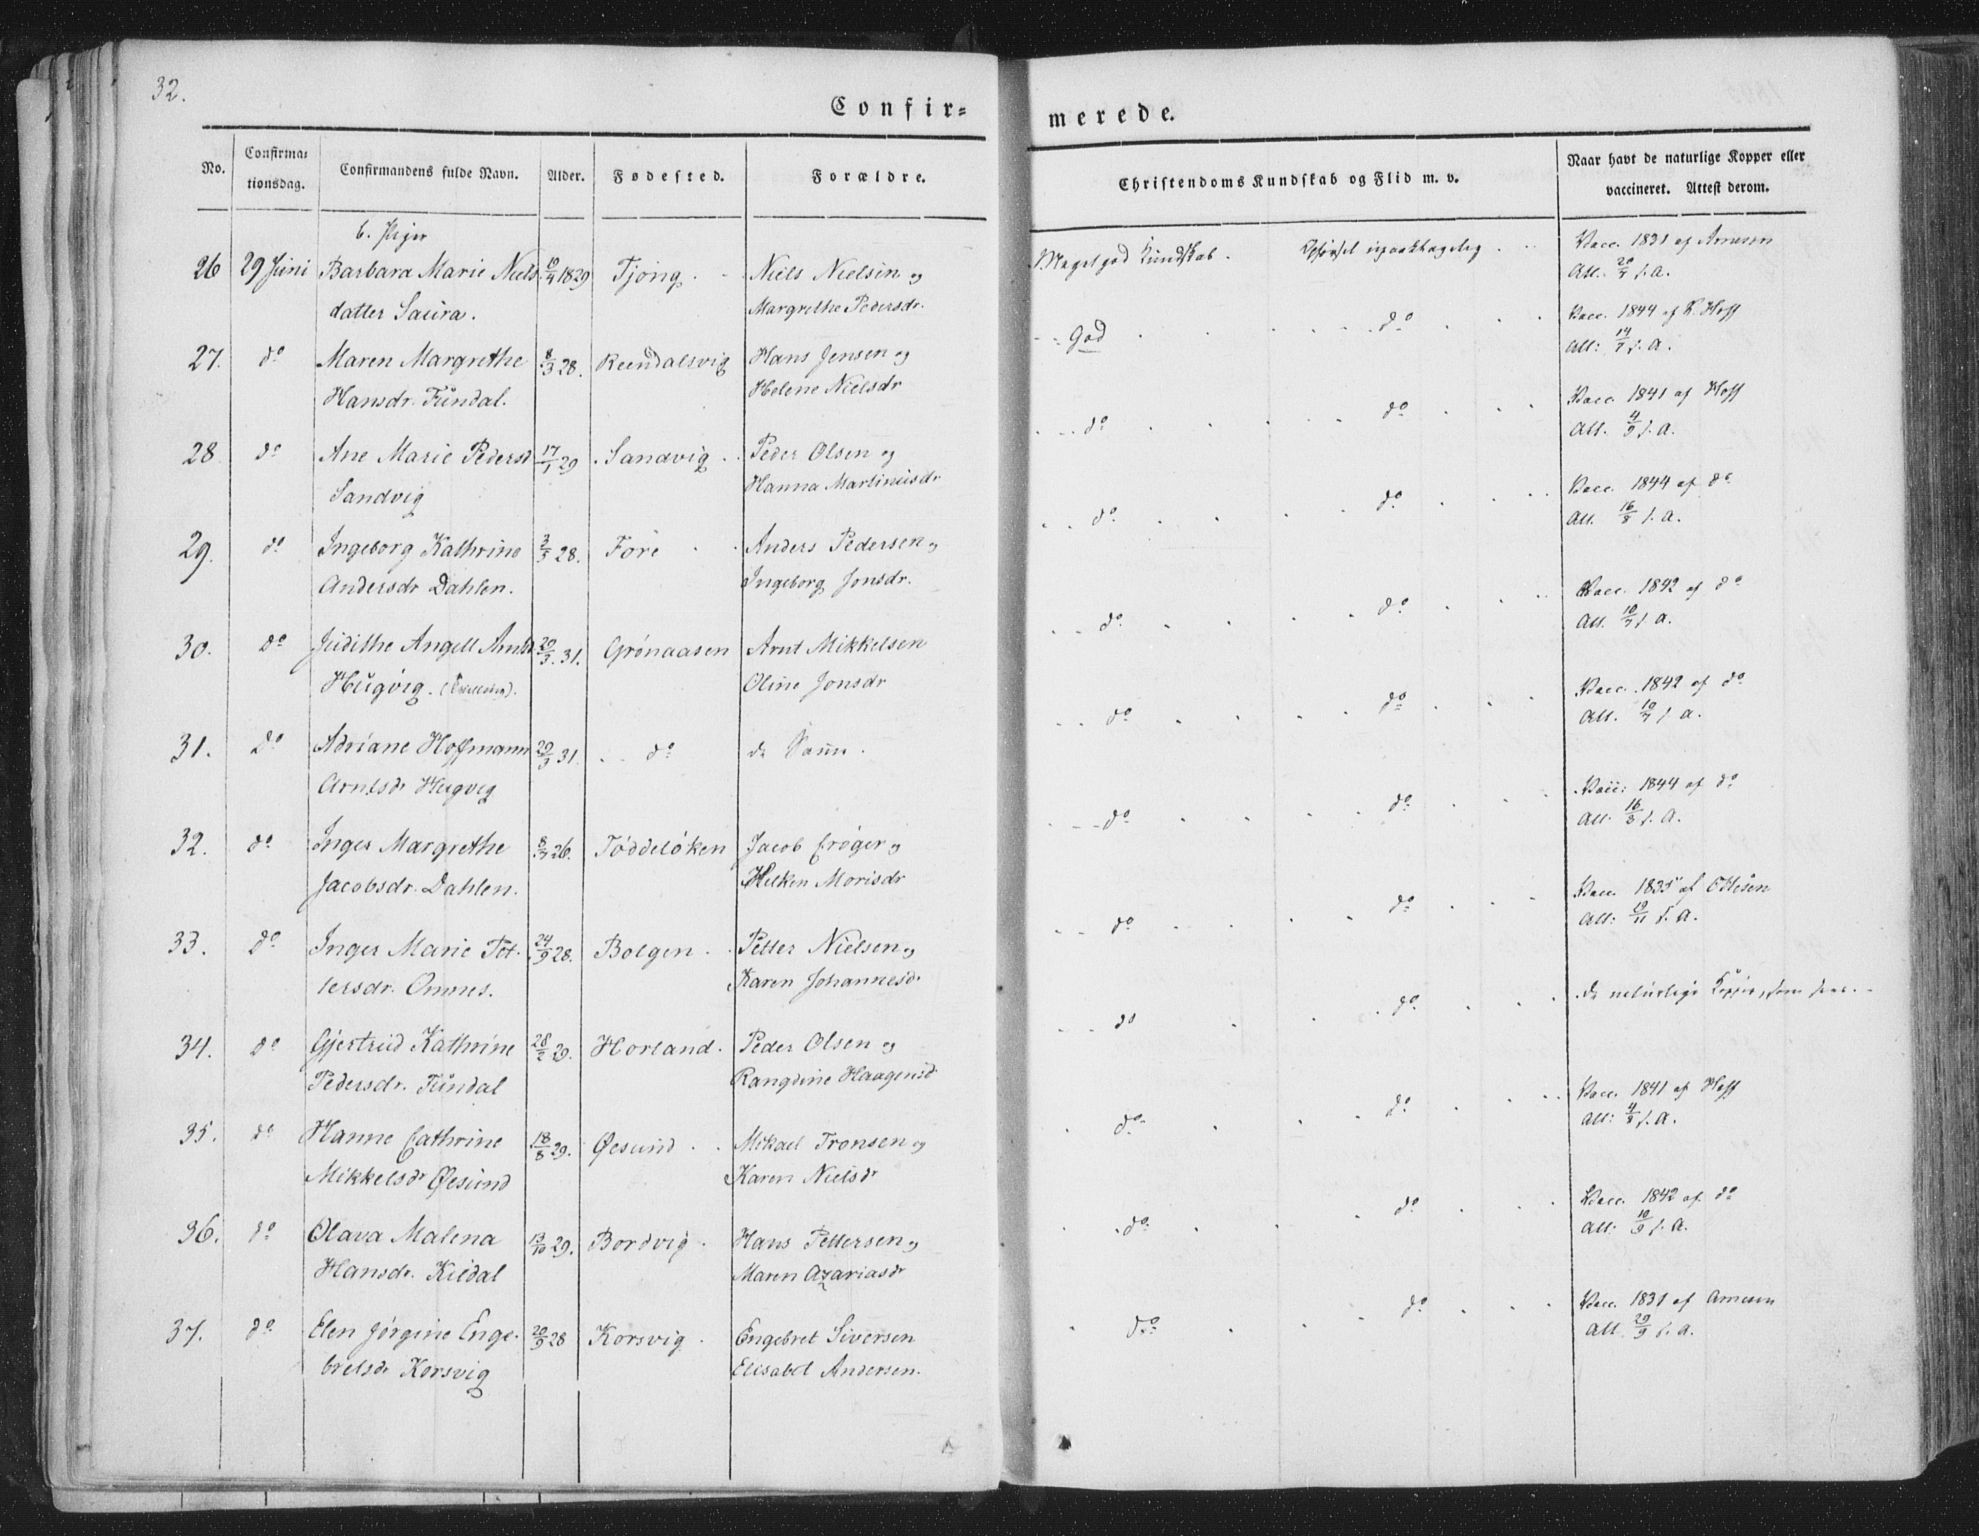 32.
Confir=
merede.
No.
Confirma=
tionsdag.
Confirmandens fulde Navn.
Alder.
Fødested.
Forældre.
Christendoms Kundskab og Flid m. v.
Naar havt de naturlige Kopper eller
vaccineret. Attest derom.
b. Piger
26 29 Juni Barbara Marie Niels 10/4 1829 Tjong Niels Nielsen og Meget god Kundskab. Vacc. 1831 af Arnesen
datter Saura. Margrethe Pedersdr. Att. 20/9 s. a.
27. do Maren Margrethe 8/3 28. Reendalsvig Hans Jensen og God do Vacc. 1844 af K. Hoff
Hansdr. Fundal. Helene Nielsdr Att: 14/7 s. a.
28 do Ane Marie Pedersd 17/1 29 Sandvig Peder Olsen og do do Vacc. 1841 af Hoff
Sandvig Hanna Martinusdr Att. 4/9 s. a.
29. do Ingeborg Kathrine 3/5 28. Fore Anders Pedersen og do do Vacc. 1844 af do
Andersdr Dahlen. Ingeborg Jonsdr. Att. 16/8 s. a.
30. do Judithe Angell Arntsd 20/3 31. Grønaasen Arnt Mikkelsen do do Vacc. 1842 af do
Hugvig. Oline Jonsdr Att. 10/9 s. a.
31. do Adriane Hoffmann 20/3 31. do de Samme. do do Vacc. 1842 af do
Arntsdr Hugvig Att. 10/9 s. a.
32. do Inger Margrethe 8/7 26. Tøddeløken Jacob Crøger og do do Vacc: 1844 af do
Jacobsdr. Dahlen. Hilken Morisdr Att. 16/8 s. A.
33. do Inger Marie Pet- 24/9 28. Bolgen Petter Nielsen og do do Vacc. 1835 af Ottesen
tersdr. Omnes. Karen Johannesdr Att: 19/11 s. a.
34. do Gjertrud Kathrine 28/2 29. Horland Peder Olsen og do do de naturlige Kopper, som
Pedersdr. Fundal Rangdine Haagensd
35. do Hanne Cathrine 18/8 29. Øesund Mikael Tronsen og do do Vacc. 1841 af Hoff
Mikkelsdr Øesund Karen Nielsdr Att: 4/9 s. a.
36. do Olava Malena 13/10 29. Bordvig Hans Pettersen og do do Vacc. 1842 af do
Hansdr. Kildal Maren Azariasdr Att: 10/9 s. a.
37. do Elen Jørgine Enge- 20/9 28 Korsvig Engebret Siversen do do Vacc. 1831 af Arnesen
bretsdr Korsvig Elisabet Andersen. Att 29/9 s. a.